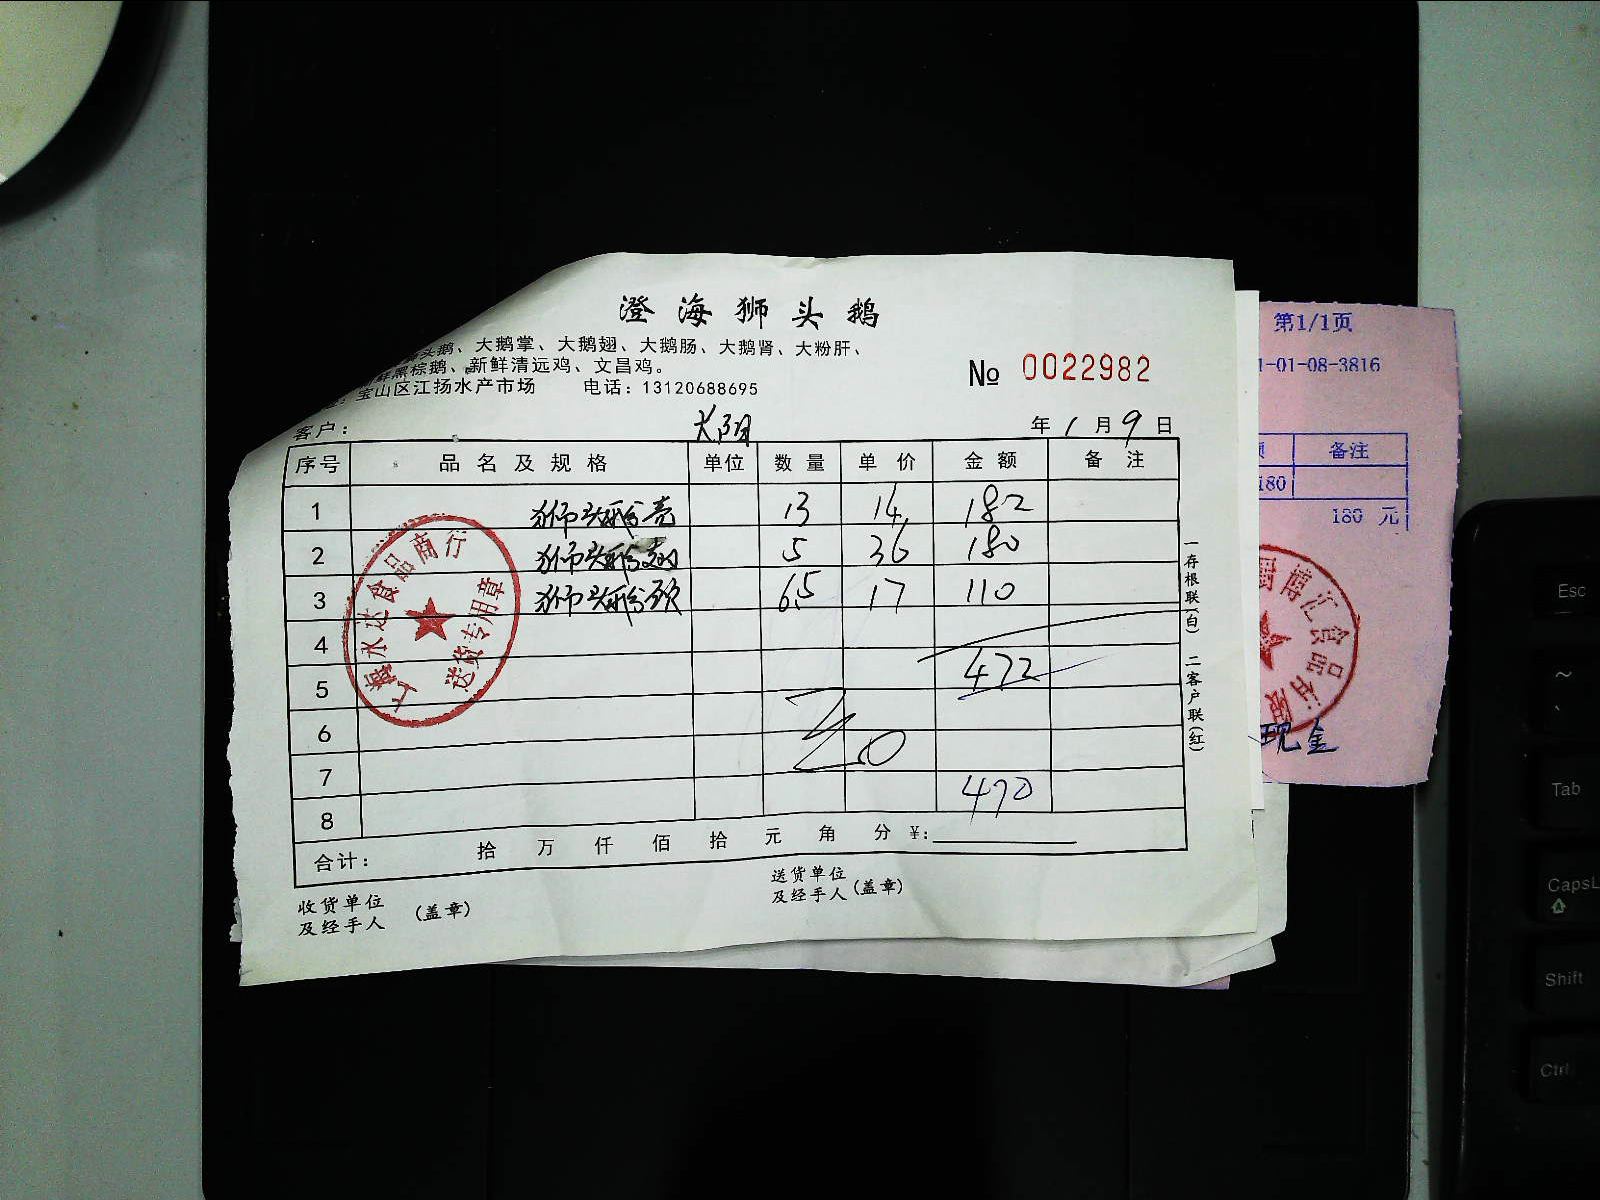 澄海狮头鹅
头鹅、大鹅掌、大鹅翅、大鹅肠、大鹅肾、大粉肝、
黑棕鹅、新鲜清远鸡、文昌鸡。
宝山区江扬水产市场 电话：13120688695
№ 0022982
客户： 年 1 月 9 日
序号 品名及规格 单位 数量 单价 金额 备注
1 狮头鹅壳 13 14 182
2 狮头鹅翅 5 36 180
3 狮头鹅颈 6.5 17 110
4
5 472
6
7 470
8
合计： 拾 万 仟 佰 拾 元 角 分 ¥：
收货单位
及经手人 （盖章）
送货单位
及经手人（盖章）
一存根联（白） 二客户联（红）
上海水达食品商行
送货专用章
第1/1页
1-01-08-3816
备注
180
180 元
厨博汇食品有限
现金
Esc
~
Tab
CapsL
Shift
Ctrl